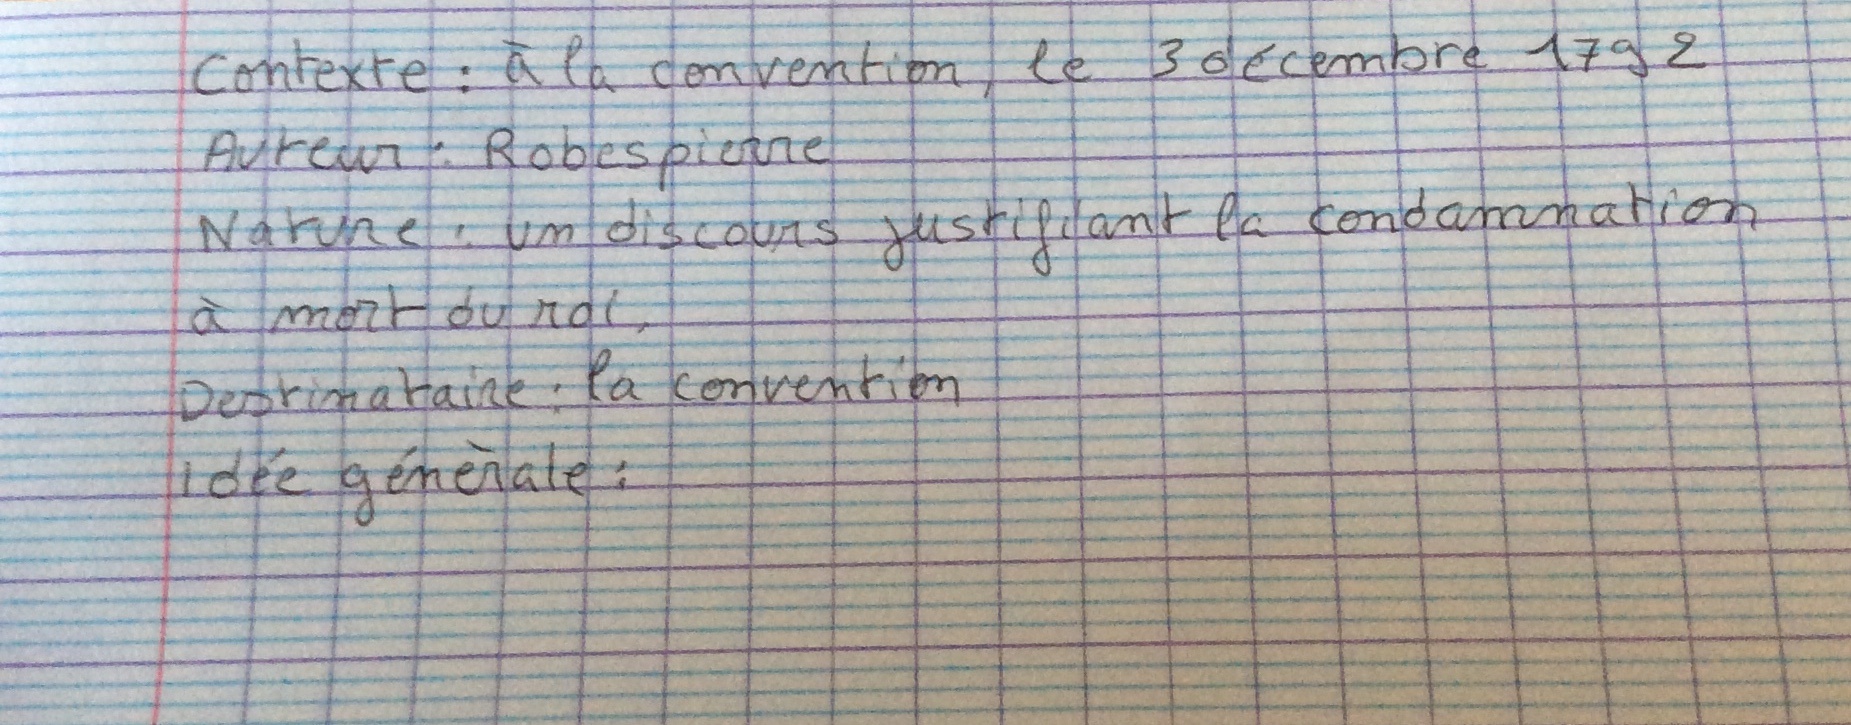 Contexte : à la convention, le 3 décembre 1792
Auteur : Robespierre
Nature : un discours justifiant la condamnation
à mort du roi.
Destinataire : la convention
idée génèrale :